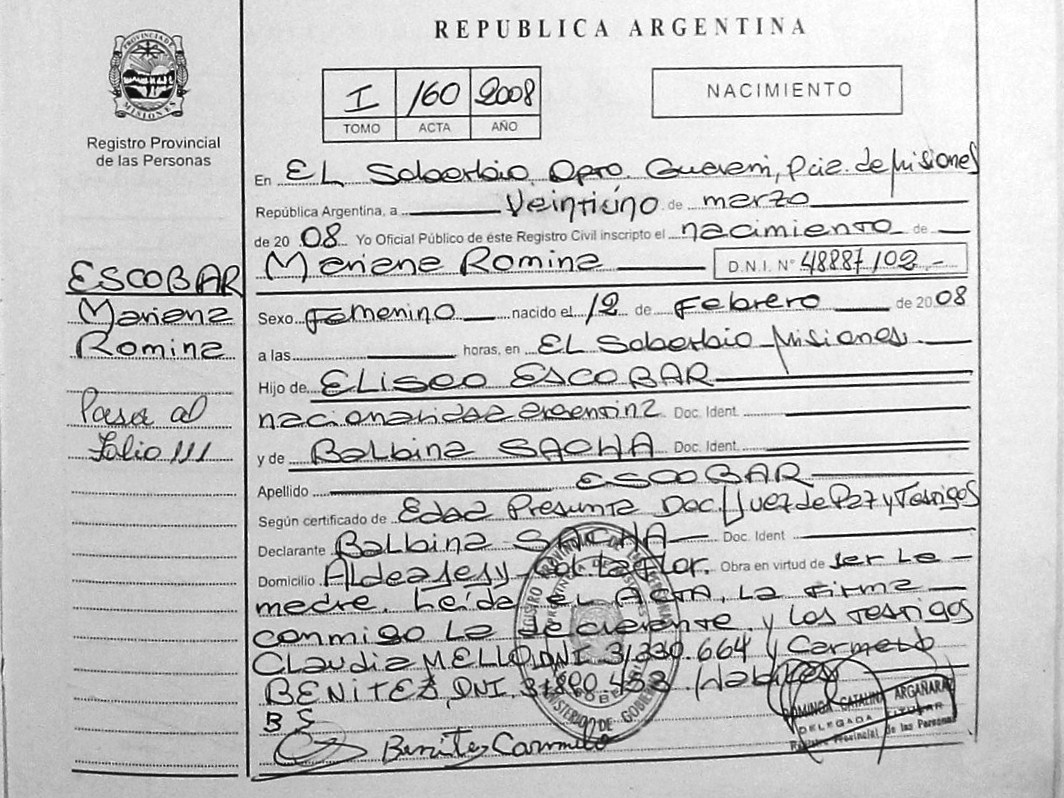 REPUBLICA ARGENTINA
PROVINCIA DE MISIONES
Registro Provincial
de las Personas
I /160 2008
TOMO ACTA AÑO
NACIMIENTO
En EL Soberbio, Dpto. Guarani, Pcia. de Misiones
República Argentina, a Veinticino de marzo
de 20 08 Yo Oficial Público de éste Registro Civil inscripto el nacimiento de
Mariana Romina D.N.I. N° 48887102
Sexo Femenino nacido el 12 de Febrero de 20 08
a las horas, en EL Soberbio Misiones.
Hijo de ELISEO ESCOBAR
nacionalidad argentina Doc. Ident.
y de Balbina SACHA Doc. Ident.
Apellido ESCOBAR
Según certificado de Edad Presunta Doc. Juez de Paz y Testigos
Declarante Balbina SACHA Doc. Ident
Domicilio Aldea Obra en virtud de ser La
madre. Leída EL Acta, La firma
conmigo La declarante y Los testigos
Claudia MELLO, DNI 31.330.664 y Carmelo
BENITEZ, DNI 453 Habiles
B S
Benites Carmelo
ESCOBAR
Mariana
Romina
Pasa al
folio 111
DOMINGA CATALINA ARGAÑARAZ
DELEGADA TITULAR
Registro Provincial de las Personas
MINISTERIO DE GOBIERNO